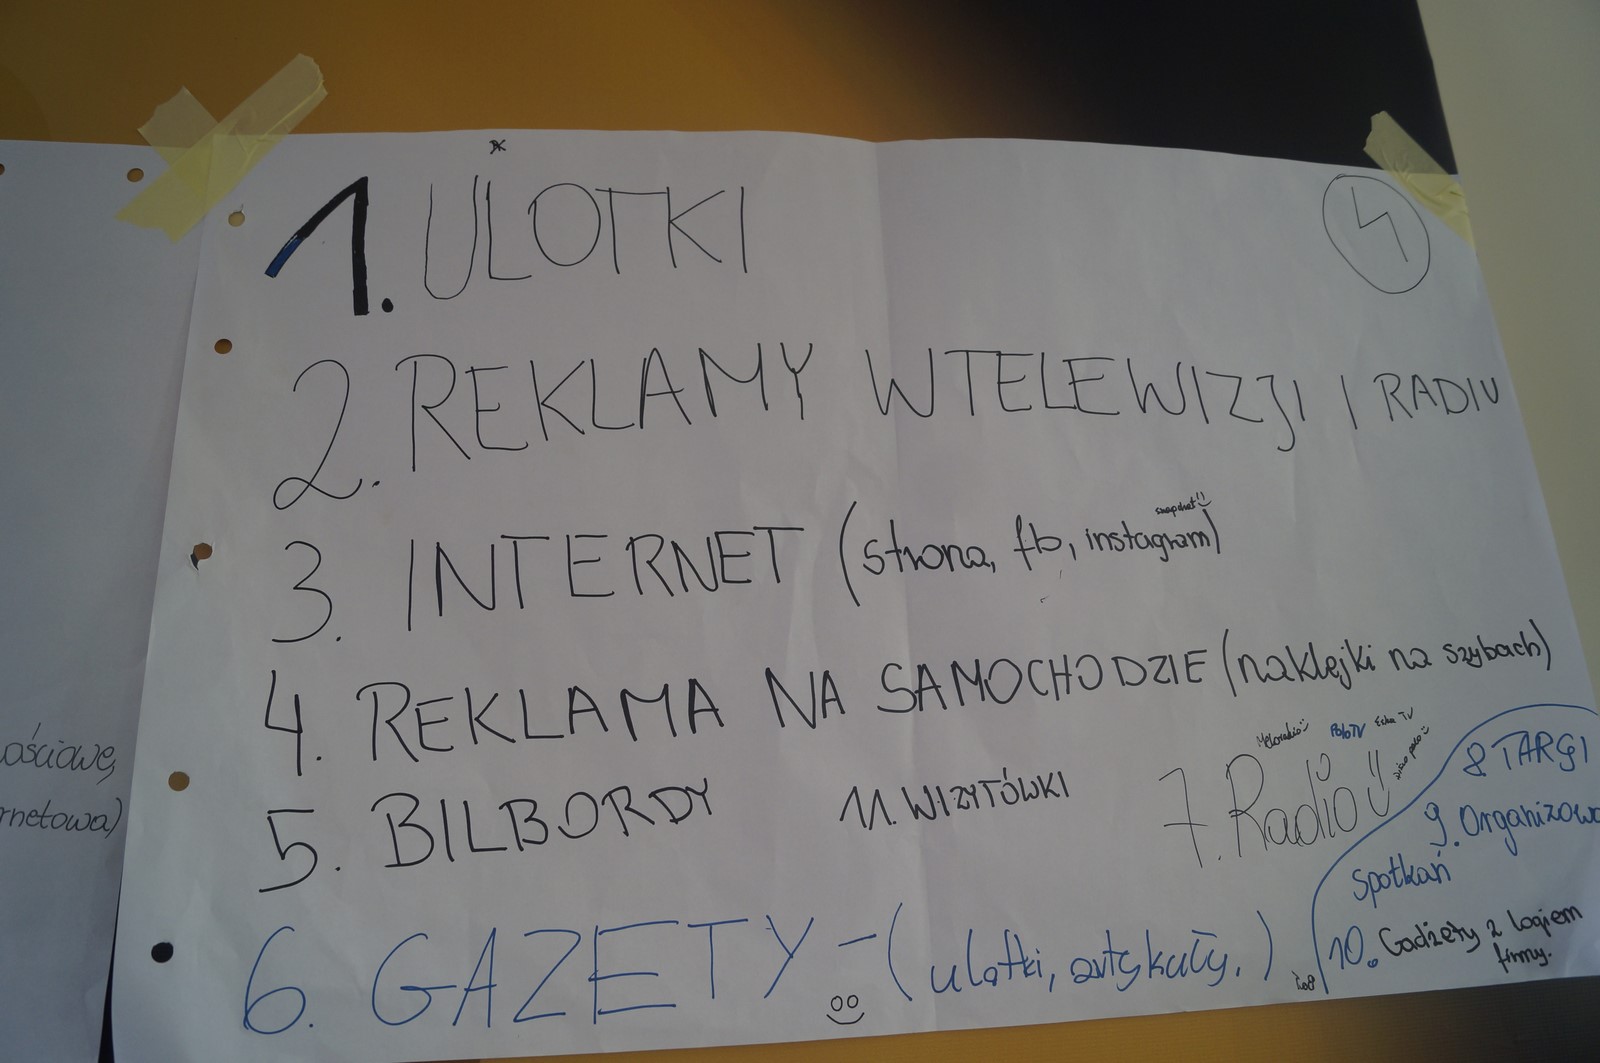 1. ULOTKI
4
2. REKLAMY W TELEWIZJI I RADIU
snapchat
3. INTERNET (strona, fb, instagram)
4. REKLAMA NA SAMOCHODZIE (naklejki na szybach)
5. BILBORDY
11. WIZYTÓWKI
Meloradio PoloTV Eska TV
Disco polo
7. Radio
8 TARGI
9. Organizowa
spotkań
10. Gadżety z logiem
firmy.
6. GAZETY - (ulotki, artykuły.)
ościowe,
rnetowa)